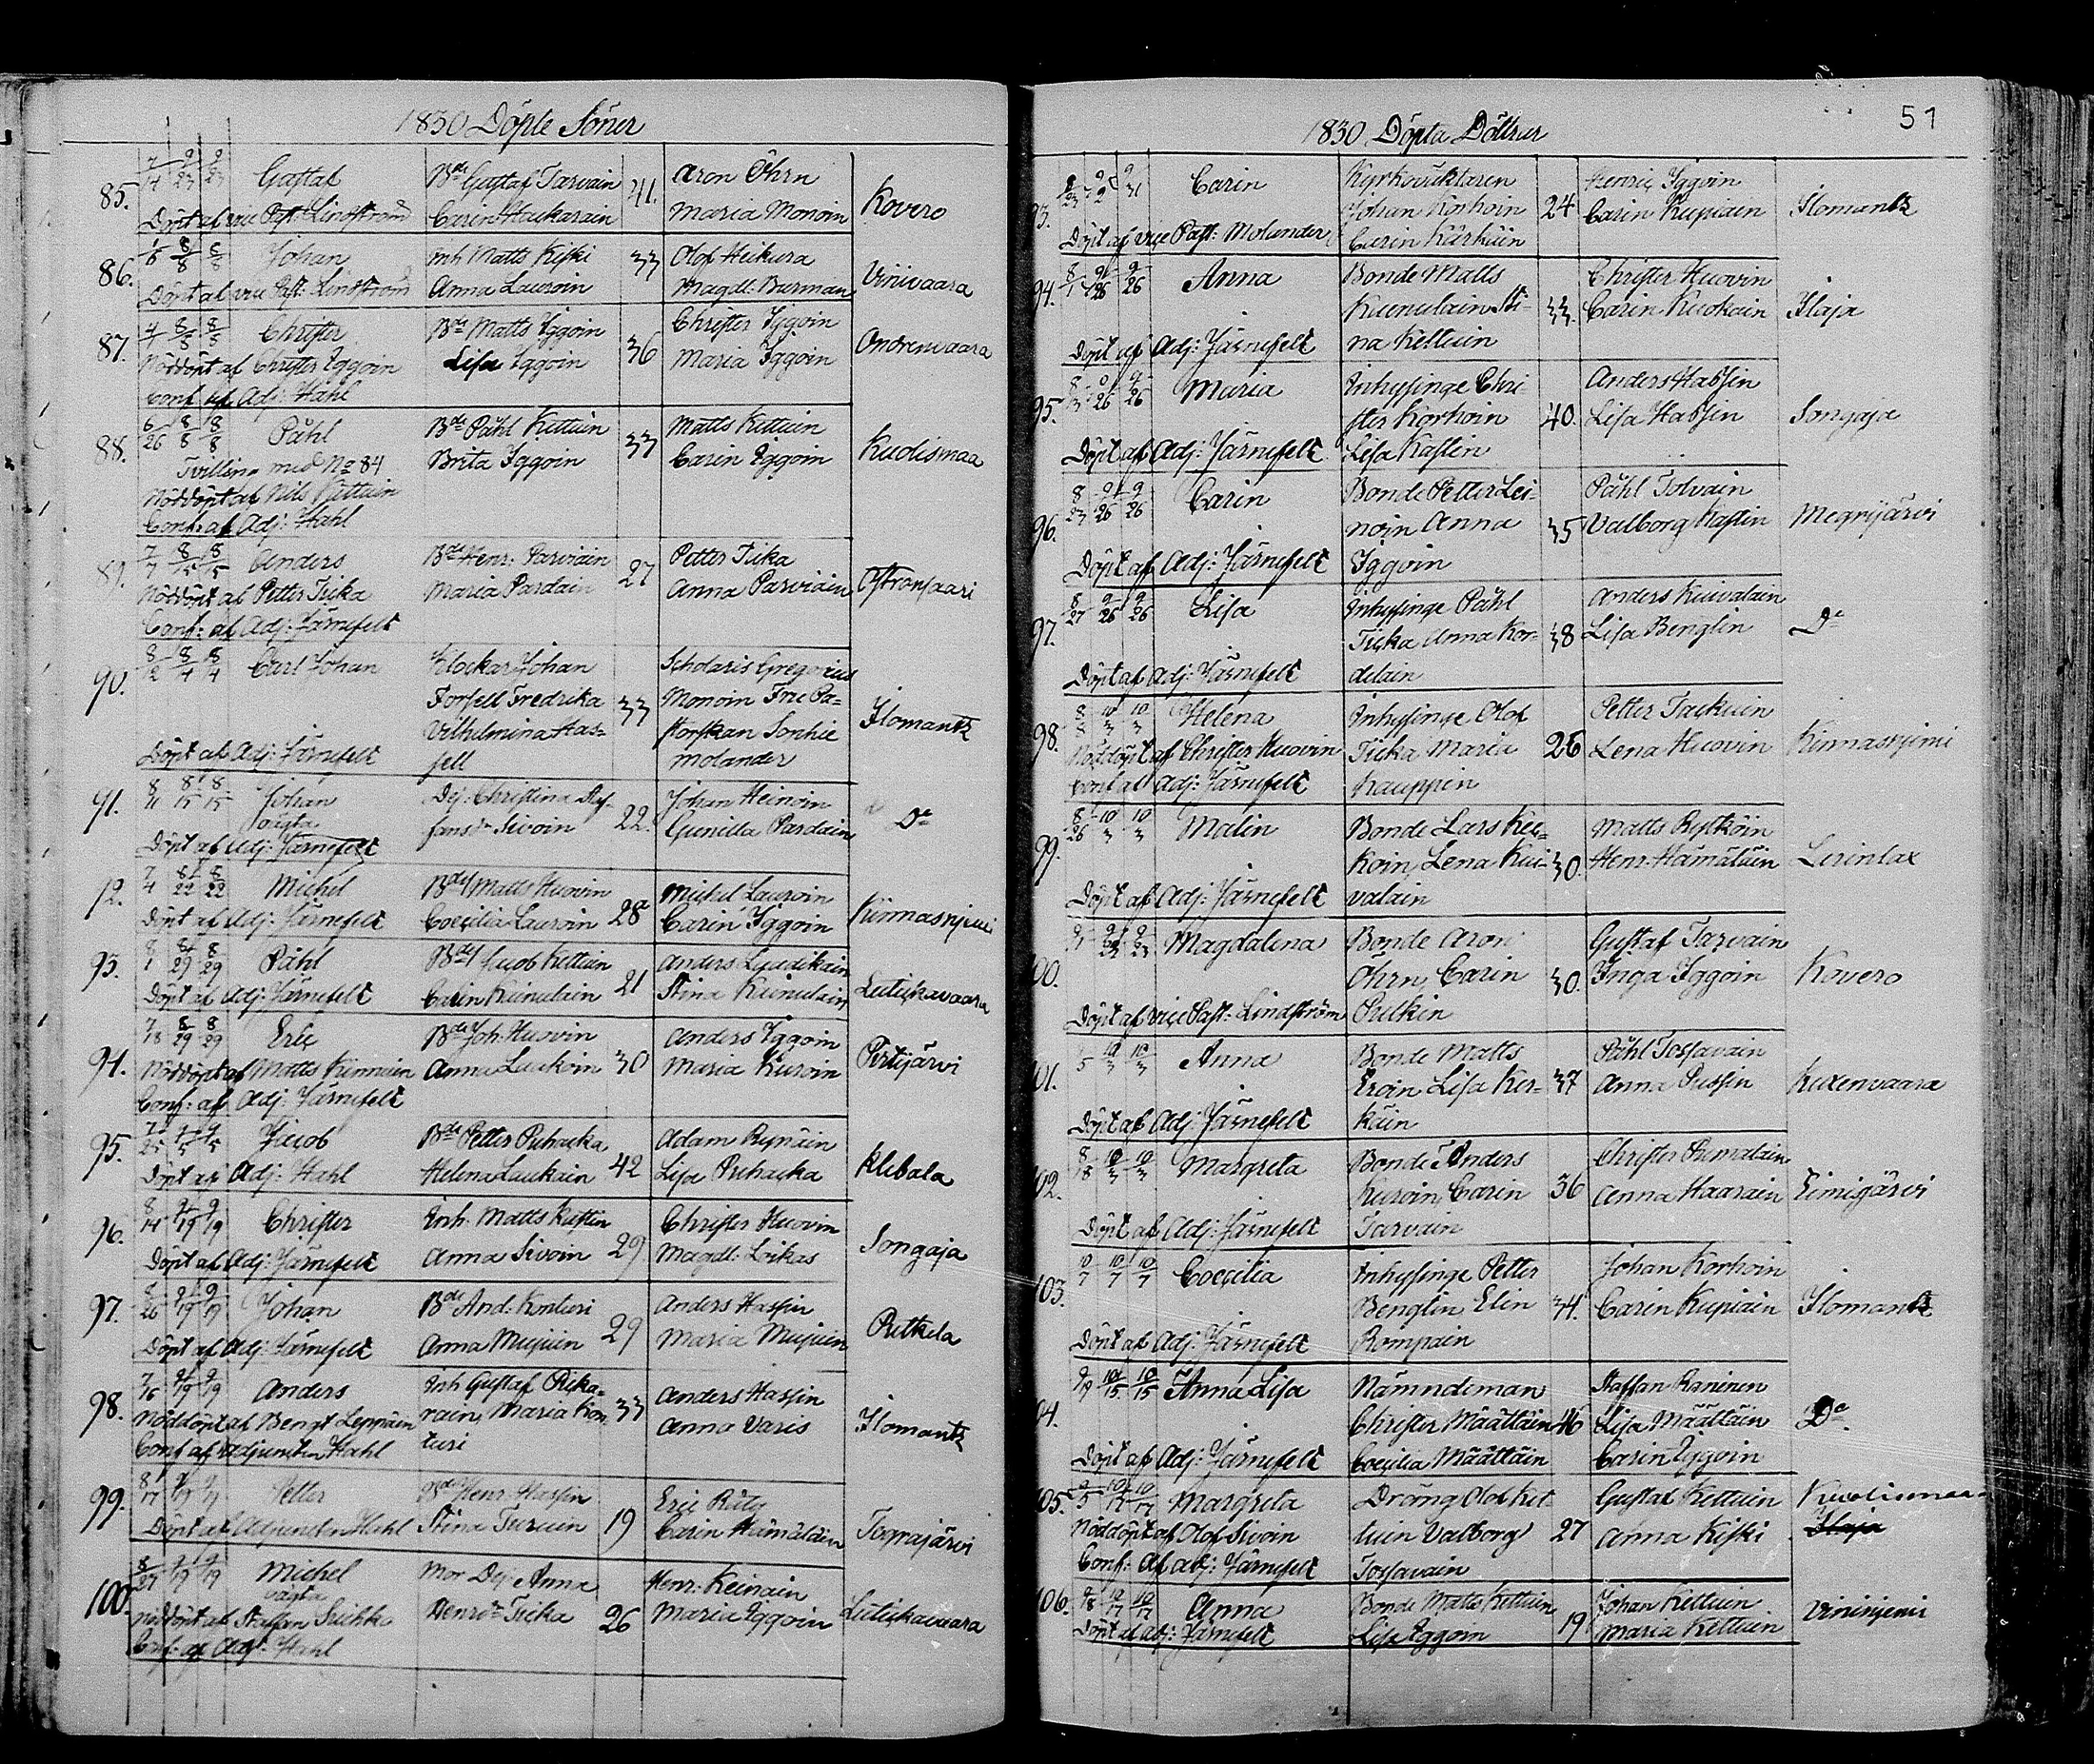 1830 Döpte Söner
85. 7/14 9/23 9/23 Gustaf Bde Gustaf Tarvain 41. Aron Öhrn Kovero
Döpt af vice Past: Lindström Carin Haukarain Maria Monoin
86. 8/8 8/8 Johan Inh Matts Kiski 33 Olof Heikura Vinivaara
Döpt af vice Past: Lindström Anna Lauroin Magdl: Burman
87. 4/4 8/5 8/5 Christer Bde Matts Iggoin 36 Christer Iggoin
Nöddöpt af Christer Iggoin Lisa Iggoin Maria Iggoin
Conf af Adj: Hahl
88. 6/26 8/8 8/8 Påhl Bde Påhl Kettuin 33 Matts Kettuin Kuolismaa
Tvilling med No 84 Brita Iggoin Carin Iggoin
Nöddöpt af Nils Kettuin
Conf: af Adj: Hahl
89. 7/7 8/5 8/5 Anders Bde Henr: Parviain 27 Petter Ticka
Nöddöpt af Petter Ticka Maria Pardain Anna Parviain
Conf: af Adj: Järnefelt
90. 8/2 8/4 8/4 Carl Johan Klockar Johan Scholaris Gregorius
Forsell Fredrika 33 Monoin Ilomants
Vilhelmina Has- Sophie
Döpt af Adj: Järnefelt sell Molander
91. 8/11 8/15 8/15 Johan 22. Johan Heinoin De
oägta Sivoin Gunilla Pardain
Döpt af Adj: Järnefelt
92. 7/4 8/22 8/22 Michel Bde Matts Huovin 28 Michel Lauroin
Döpt af Adj: Järnefelt Coecilia Lauroin Carin Iggoin Kinnasnjemi
93. 8/1 8/29 8/29 Påhl Bde Jacob Kettuin 21
Döpt af Adj: Järnefelt Carin Keinulain Stina Keinulain Lutickavaara
94. 7/18 8/29 8/29 Eric Bde Joh: Huovin 30 Anders Iggoin
Nöddöpt af Matts Anna Laukoin Maria Kuroin
Conf: af Adj: Järnefelt
95. 7/25 Jacob Bde Petter Puhacka 42 Adam
Döpt af Adj: Hahl Helena Laukain Lisa Puhacka Klebala
96. 8/14 9/19 9/19 Christer Inh. Matts 29 Christer Huovin
Döpt af Adj: Järnefelt Anna Sivoin Magdl: Loikas Songaja
97. 8/26 9/19 9/19 Johan Bde And: Konturi 29 Anders Hassin
Döpt af Adj: Järnefelt Anna Mujuin Maria Mujuin Putkela
98. 7/16 9/19 9/19 Anders Inh Gustaf Picka- 33 Anders Hassin
Nöddöpt af Bengt Leppäin rain, Maria Kon- Anna Varis Ilomants
Conf af Adjuncten Hahl turi
99. 8/17 Petter Bde Henr: Hassin 19 Eric Räty
Döpt af Adjuncten Hahl Stina Turuin Carin Hämäläin
100 8/27 9/19 9/19 Michel Mor Dej Anna 26 Henr: Keinäin
oägta Ticka Maria Iggoin Lutickavaara
Nöddöpt af Staffan
Conf: af Adj: Hahl
51
1830 Döpta Döttrar
93. Carin Kyrkovaktaren Henric Iggoin
Johan Korhoin 24 Carin Kupiain Ilomants
Döpt af vice Past: Molander Carin Kärkäin
94. 8/1 9/26 9/26 Anna Bonde Matts Christer Huovin
Kuonulain Sti- 33. Carin Kuokain Ilaja
Döpt af Adj: Järnefelt na Kettuin
95. 9/26 9/26 Maria Inhysinge Chri- Anders Hassin
ster Korhoin 40. Lisa Hassin Songaja
Döpt af Adj: Järnefelt Lisa Kastin
96. 8/23 9/26 9/26 Carin Bonde Petter Lei- Påhl Tolvain
noin Anna 35 Valborg Kastin Megrijärvi
Döpt af Adj: Järnefelt Iggoin
97. 8/27 9/26 9/26 Lisa Inhysinge Påhl Anders Kuivalain
Ticka Anna Kor- 38 Lisa Benglin De
Döpt af Adj: Järnefelt delain
98. 8/8 10/3 10/3 Helena Inhysinge Olof Petter Tackuin
Nöddöpt af Christer Huovin Ticka Maria 26 Lena Huovin Kinnasnjemi
Conf af Adj: Järnefelt Kauppin
99. 8/26 10/3 10/3 Malin Bonde Lars Kee- Matts
koin, Lena Kui- 30. Henr: Hämäläin
Döpt af Adj: Järnefelt valain
100. Magdalena Bonde Aron Gustaf Tarvain
Öhrn, Carin 30. Inga Iggoin Kovero
Döpt af vice Past: Lindström Pulkin
101. 10/3 10/3 Anna Bonde Matts Påhl Tossavain
Eroin Lisa Ker- 37 Anna Pussin Kuxenvaara
Döpt af Adj: Järnefelt käin
102. 8/18 10/3 10/3 Margreta Bonde Anders Christer
Kuroin, Carin 36 Anna Haarain
Döpt af Adj: Järnefelt Tarvain
103. 10/7 10/7 10/7 Coecilia Inhysinge Petter Johan Korhoin
Benglin Elin 34. Carin Kupiain Ilomants
Döpt af Adj: Järnefelt Rompain
104. 9/19 10/15 10/15 Anna Lisa Nämndeman Staffan Raninen
Christer Määttäin 46 Lisa Määttäin De
Döpt af Adj: Järnefelt Coecilia Määttäin Carin Iggoin
105. 10/17 10/17 Margreta Dräng Olof Ket- Gustaf Kettuin Kuolismaa
Nöddöpt af Olof Sivoin tuin Valborg 27 Anna Kiski Ilaja
Conf: af adj: Järnefelt Tossavain
106. 9/18 10/17 10/17 Anna Bonde Matts Kettuin 19 Johan Kettuin
Döpt af adj: Järnefelt Lisa Iggoin Maria Kettuin